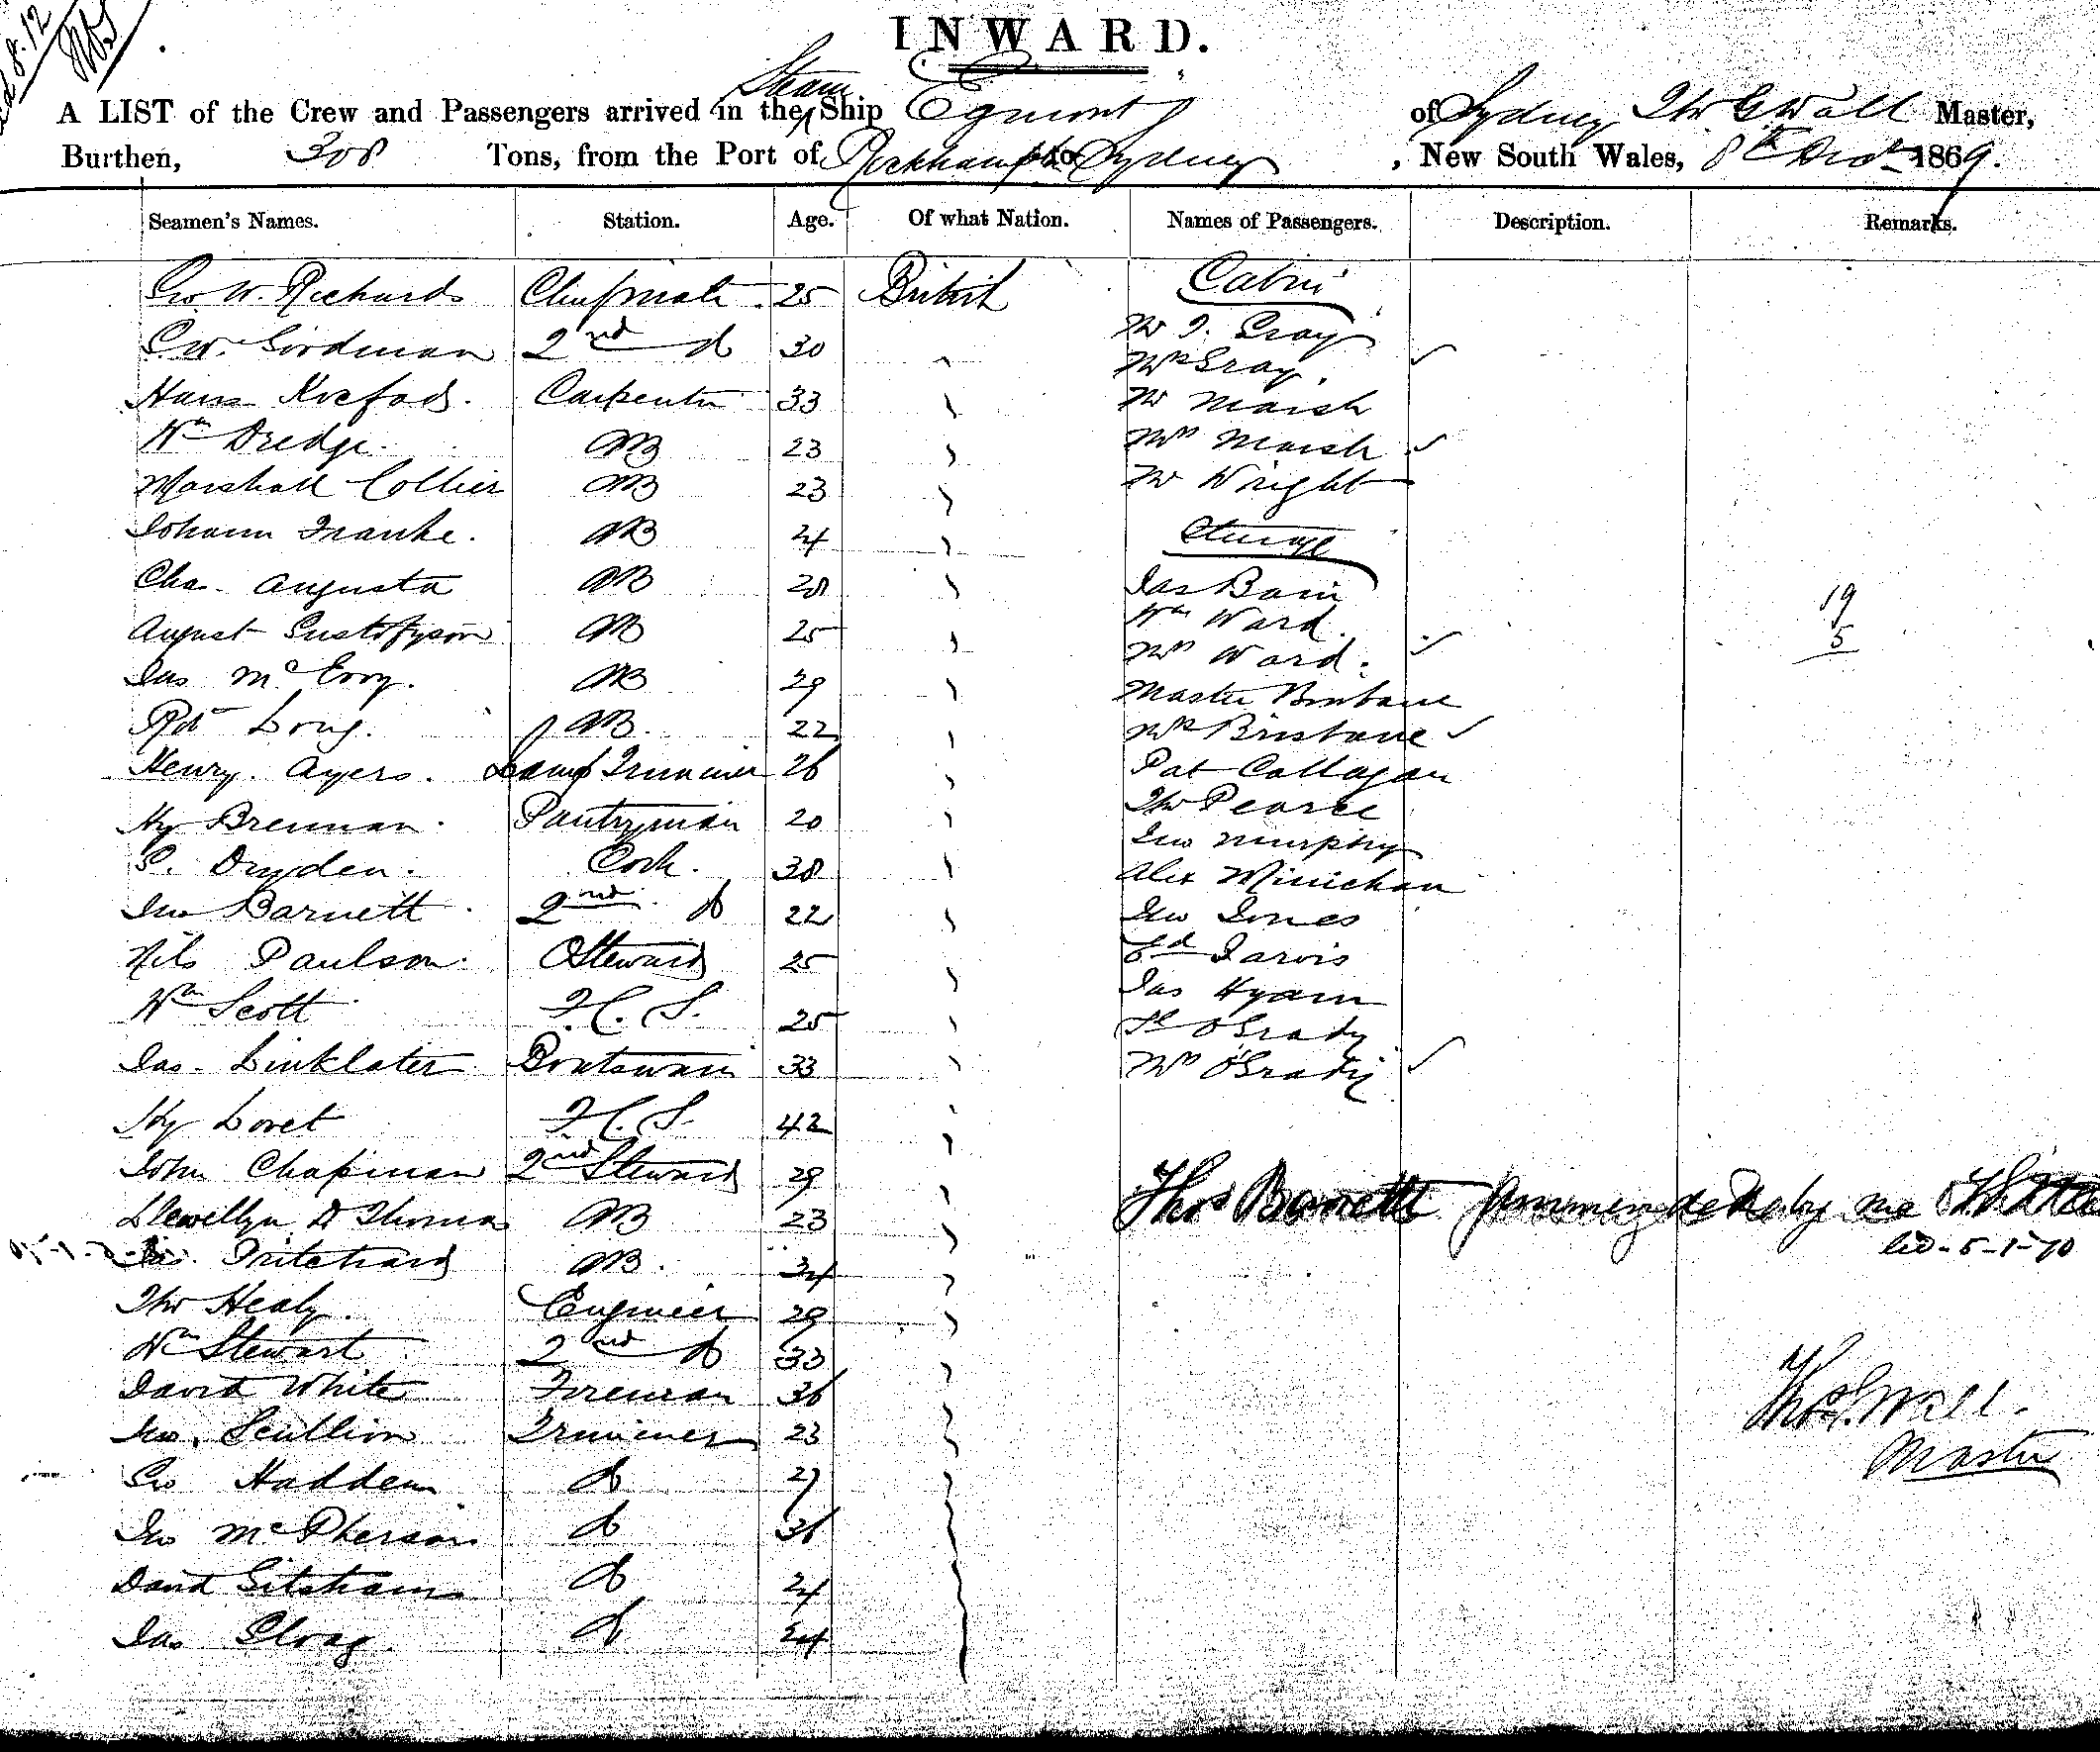 INWARD.
A LIST of the Crew and Passengers arrived in the Steam Ship Egmont of Sydney Thos G Wall Master,
Burthen, 308 Tons, from the Port of Rockhampton to Sydney, New South Wales, 8th Decr 1869.
Seamen's Names. Station. Age. Of what Nation. Names of Passengers. Description. Remarks.
Geo W. Richards Chief mate 25 British Cabin
2nd do 30 Mr J. Gray
Mrs Gray.
Hans Carpenter 33 Mr Marsh
Wm Dredge. AB 23 Mrs Marsh
Marshall Collier AB 23 Mr Wright
Johann Franke. AB 24 Steerage
Chas. Augusta AB 28 Jas Bain
Wm Ward. 19
August Gustafyson AB 25 Mrs Ward. 5
Jas McEvoy. AB 29 Master Brisbane
Robt Long. AB. 22 Mrs Brisbane
Henry. Ayers. Lamp Trimmer 26 Pat Callagan
Hy Brennan. Pantryman 20 Thos Pearce
Jno Murphy
S. Dryden. Cook. 38 Alex Minichan
Jno Barnett 2nd do 22 Jno Jones
Nils Paulson. Steward 25 Ed Jarvis
Jas Hyam
Wm Scott F.C.S. 25 O'Grady
Jas. Linklater Boatswain 33 Mrs O'Grady
Hy Lovet F.C.S. 42
John Chapman 2nd Steward 29
Thos Barnett
Llewellyn D Thomas AB 23
5-1-70
Jas. Pritchard AB. 34
Thos Healy. Engineer 29
Wm Stewart 2nd do 33
David White Fireman 36
Thos G. Wall.
Jno. Scullion Trimmer 23
Master
Geo Hadden do 27
Jno McPherson do 36
David Gitsham do 24
Jas do 24